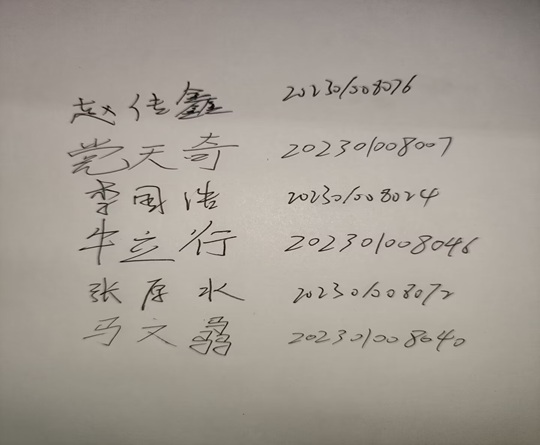 赵佳鑫 202301008076
党天奇 202301008007
李国浩 202301008024
牛立行 202301008046
张厚水 202301008072
马文骉 202301008040